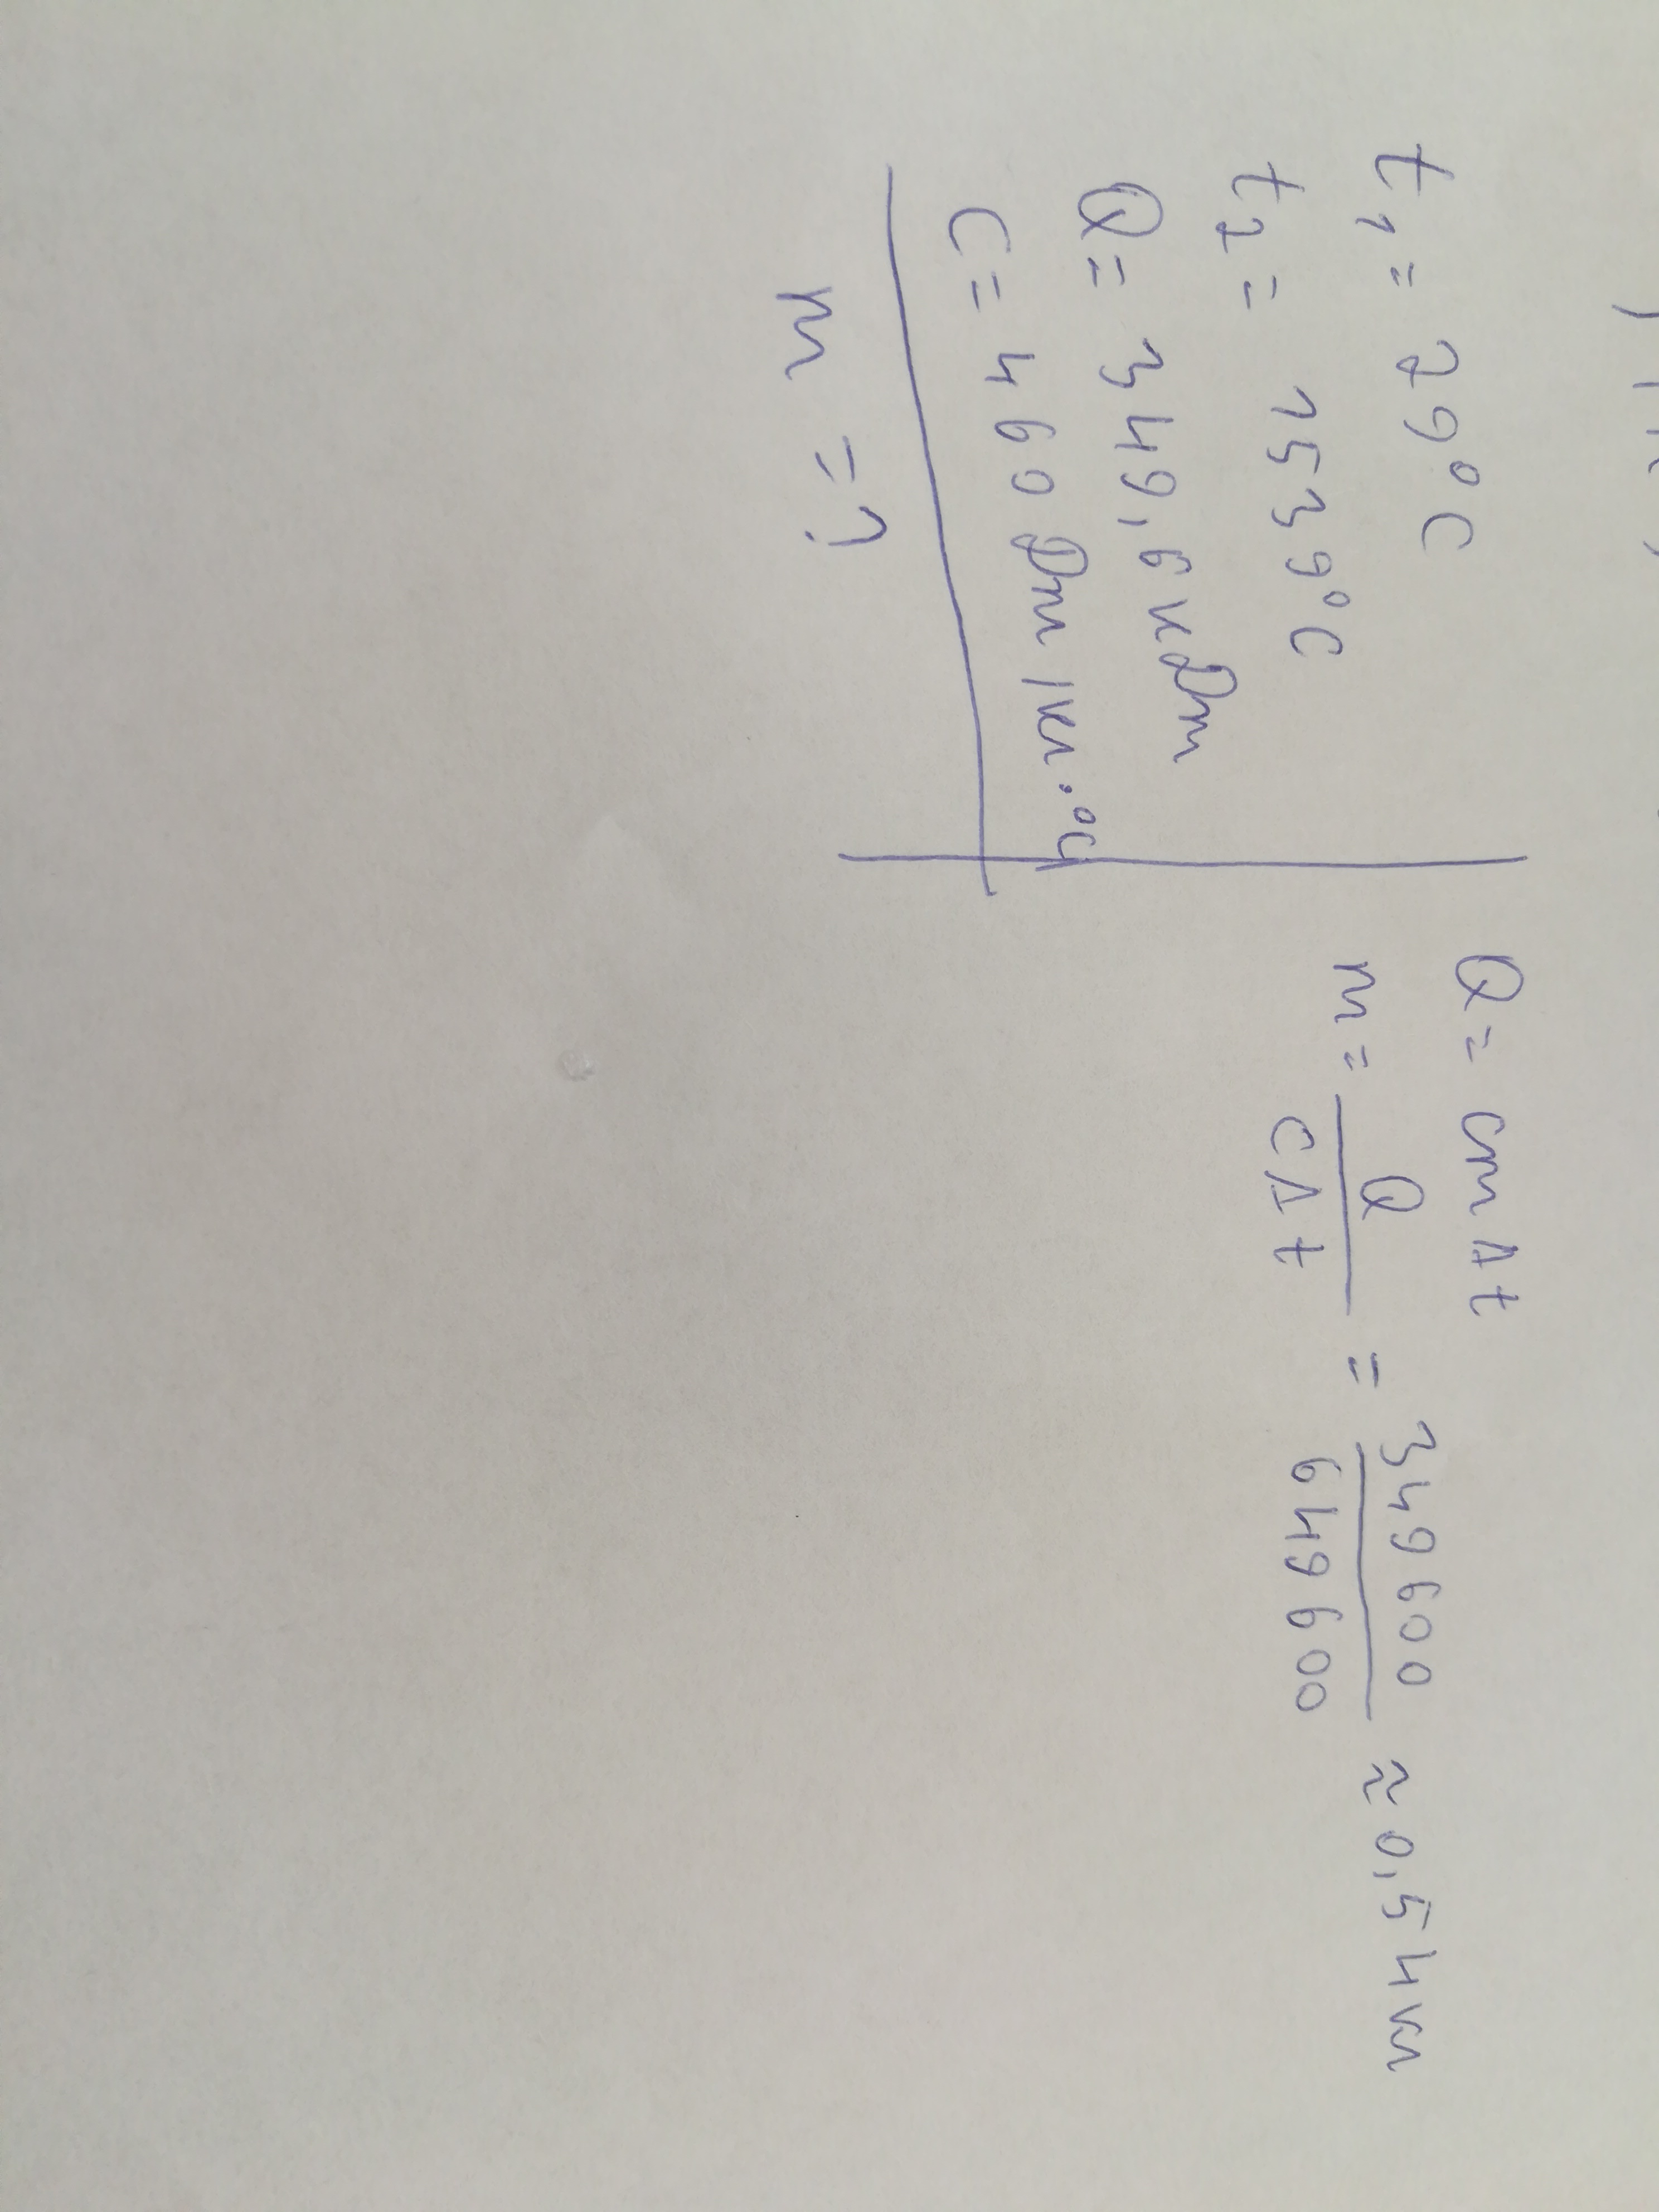 t₁ = 29°C
t₂ = 1539°C
Q = 349,6 кДж
C = 460 Дж/кг·°C
m = ?
Q = cmΔt
m = Q/cΔt = 349600/649600 ≈ 0,54 кг